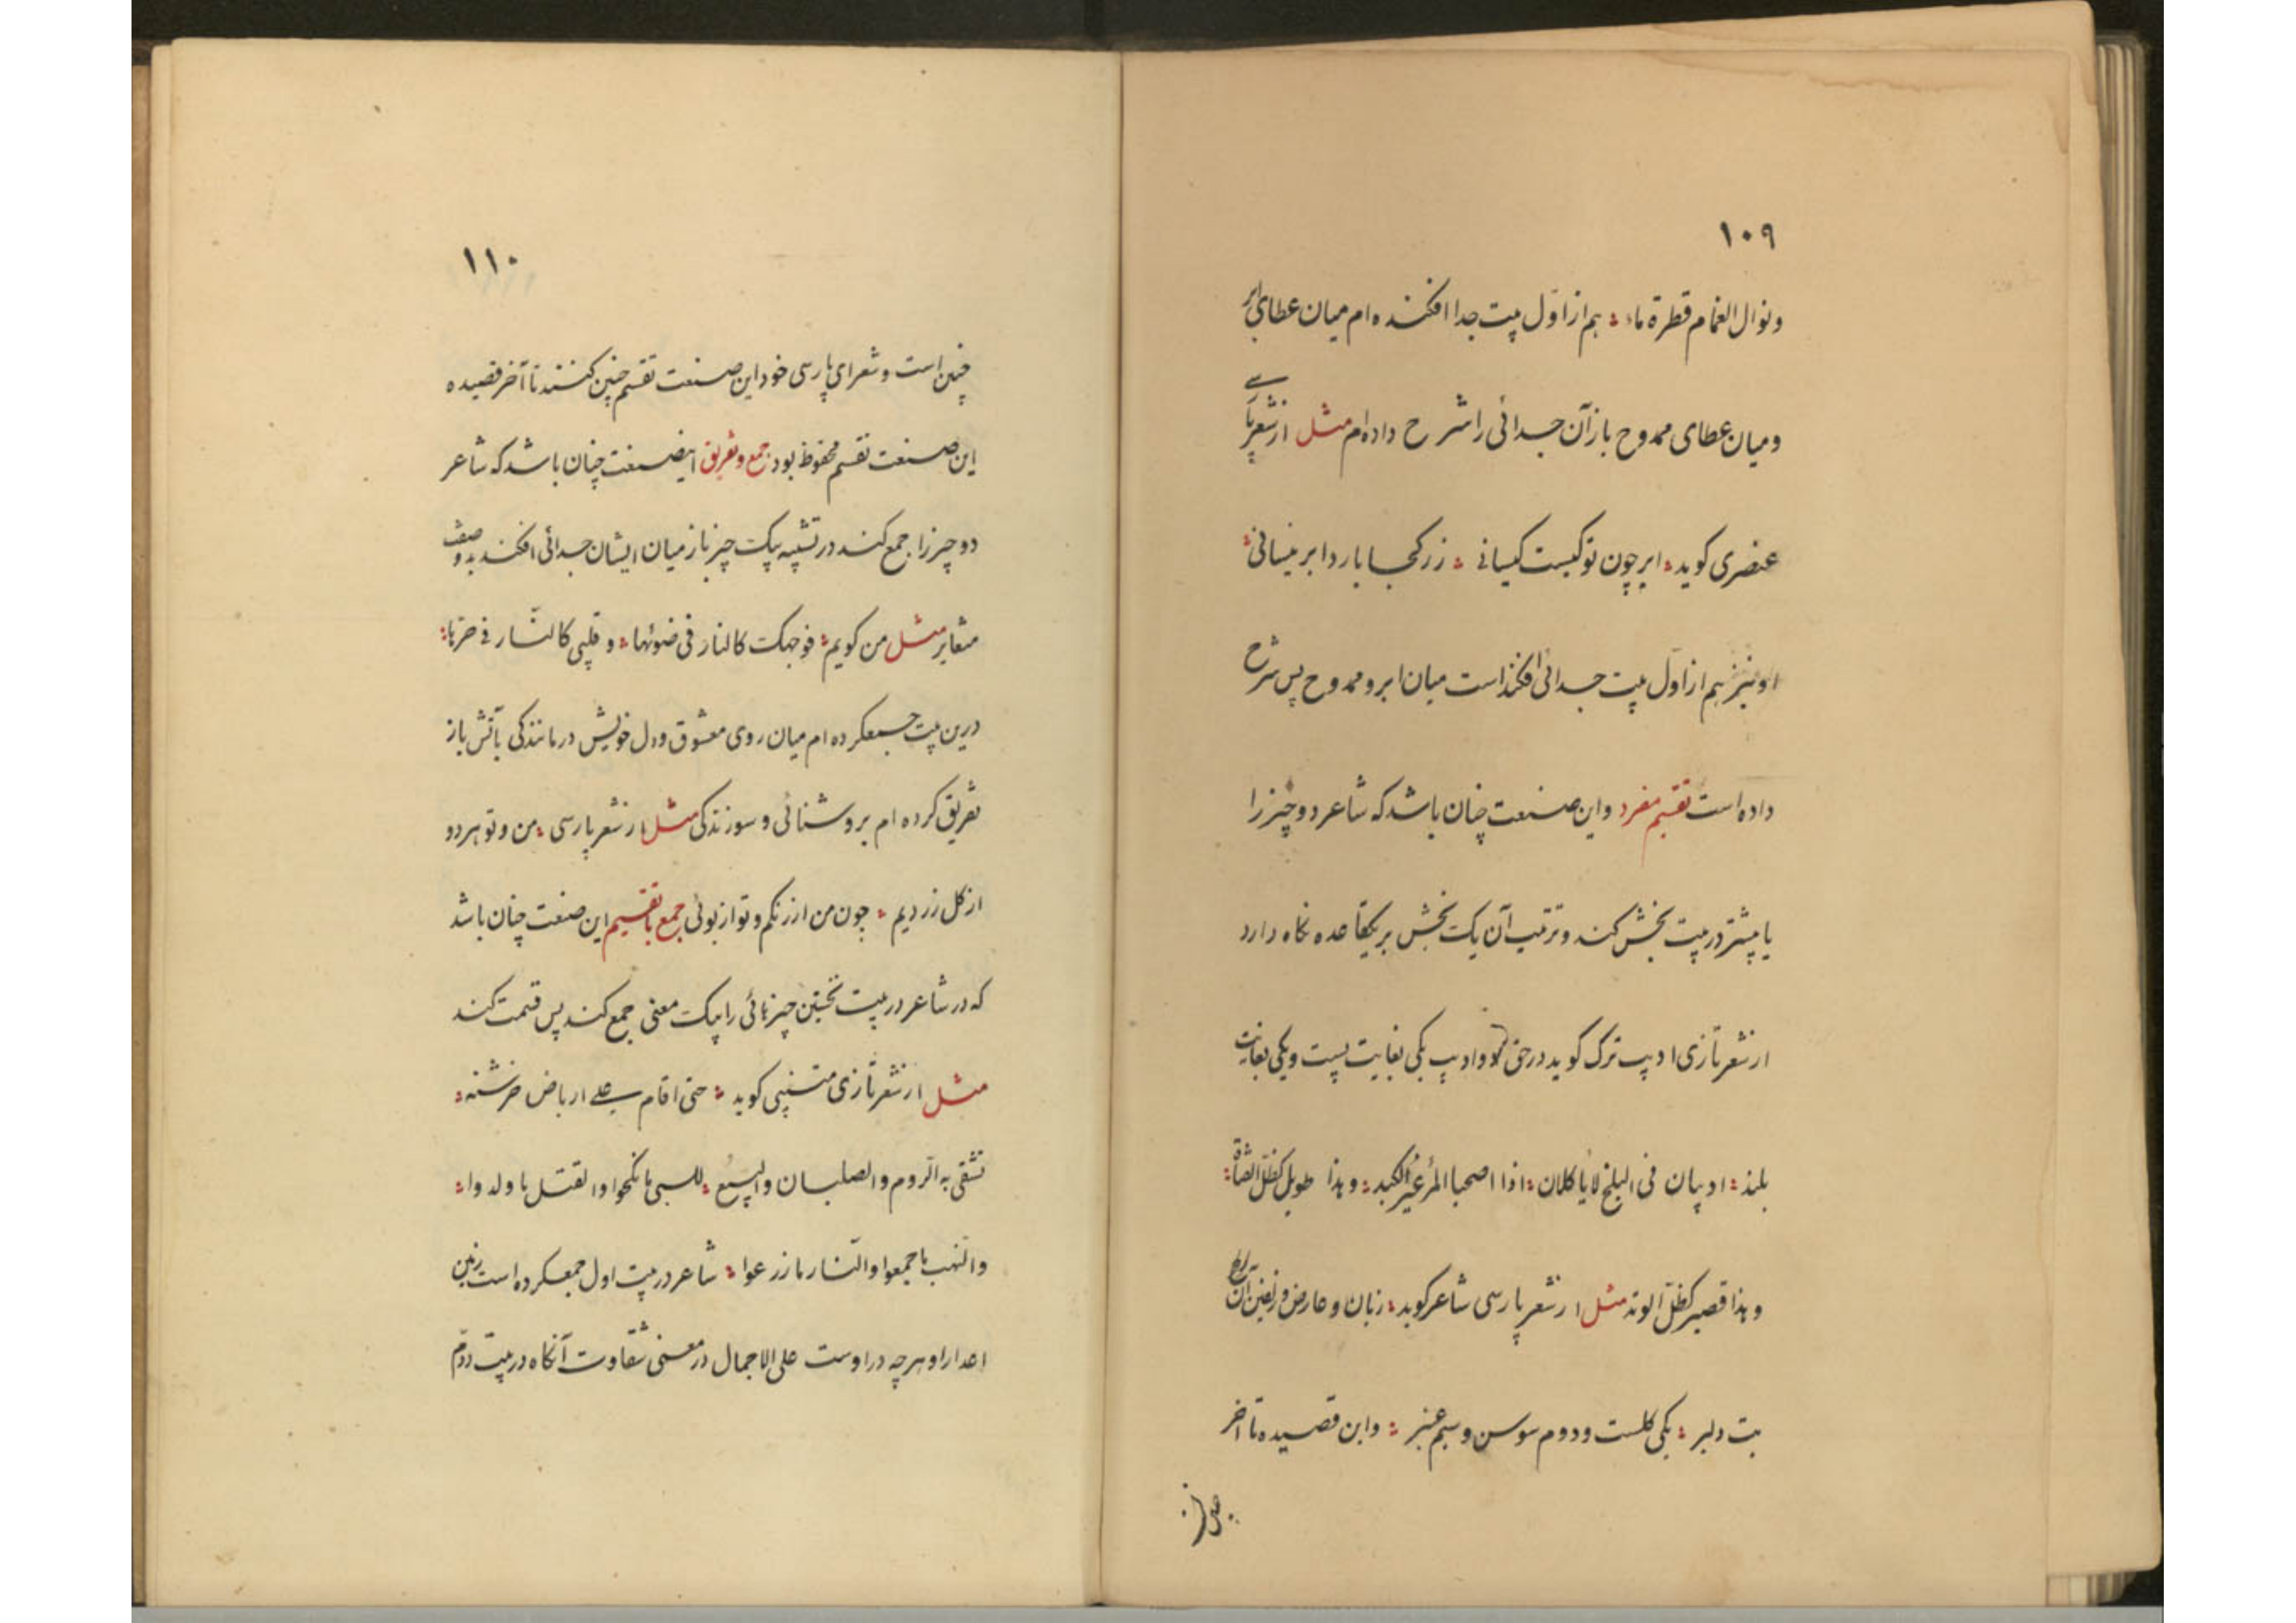 ۱۰۹
ونوال الغمام قطرة ماء ؛ هم از اوّل بیت جدا افکنده ام میان عطای ابر
ومیان عطای ممدوح باز آن جدائی را شرح داده ام مثل از شعر پارسی
عنصری کوید ؛ ابر چون تو کیست کیسانی ؛ زر کجا بارد ابر نیسانی ؛
او نیز هم از اول بیت جدائی افکنداست میان ابر و ممدوح پس شرح
داده است تقسیم مفرد واین صنعت چنان باشد که شاعر دو چیز را
یا پیشتر در بیت بخش کند و ترتیب آن یک بخش بر یکقاعده نکاه دارد
از شعر تازی ادیب ترک کوید در حق دو ادیب یکی بغایت پست ویکی بغایت
بلند ؛ ادیبان فی البلخ لا یاکلان ؛ اذا اصحبا المرء غیر الکبد ؛ وهذا طویل کظل القناة ؛
وهذا قصیر کظلّ الوتد مثل از شعر پارسی شاعر کوید ؛ زبان و عارض و زلفین آن
بت دلبر ؛ یکی کلست ودوم سوسن وسیم عنبر ؛ واین قصیده تا آخر
۱۱۰
چنین است وشعرای پارسی خود این صنعت تقسیم چنین کنند تا آخر قصیده
این صنعت تقسیم محفوظ بود جمع وتفریق اینصنعت چنان باشد که شاعر
دو چیز را جمع کند در تشبیه بیک چیز باز میان ایشان جدائی افکند بدو صفت
متغایر مثل من کویم ؛ فوجهک کالنار فی ضوئها ؛ و قلبی کالنّار فی حرّها ؛
درین بیت جمعکرده ام میان روی معشوق ودل خویش در مانندکی بآتش باز
تفریق کرده ام بروشنائی و سوزندکی مثل از شعر پارسی ؛ من وتو هر دو
از کل زردیم ؛ چون من از رنکم وتو از بوئی جمع با تقسیم این صنعت چنان باشد
که در شاعر در بیت نخستین چیزهائی را بیک معنی جمع کند پس قسمت کند
مثل از شعر تازی متنبی کوید ؛ حتی اقام علی ارباض خرشنه ؛
تشقی به الرّوم والصلبان والبیع ؛ للسبی ما نکحوا والقتل ما ولدوا ؛
والنهب ما جمعوا والنّار ما زرعوا ؛ شاعر در بیت اول جمعکرده است زمین
اعدا را وهر چه در اوست علی الاجمال در معنی شقاوت آنکاه در بیت دوّم